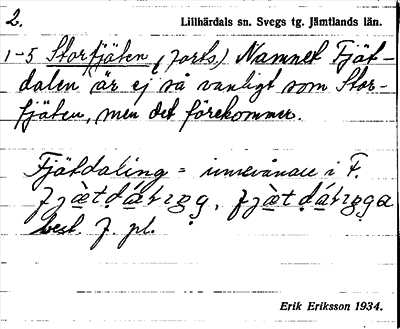 2.
Lillhärdals sn. Svegs tg. Jämtlands län.
1-5 Storfjäten (forts.) Namnet Fjät-
dalen är ej så vanligt som Stor-
fjäten, men det förekommer.
Fjätdaling = innevånare i F.
best. f. pl.
Erik Eriksson 1934.